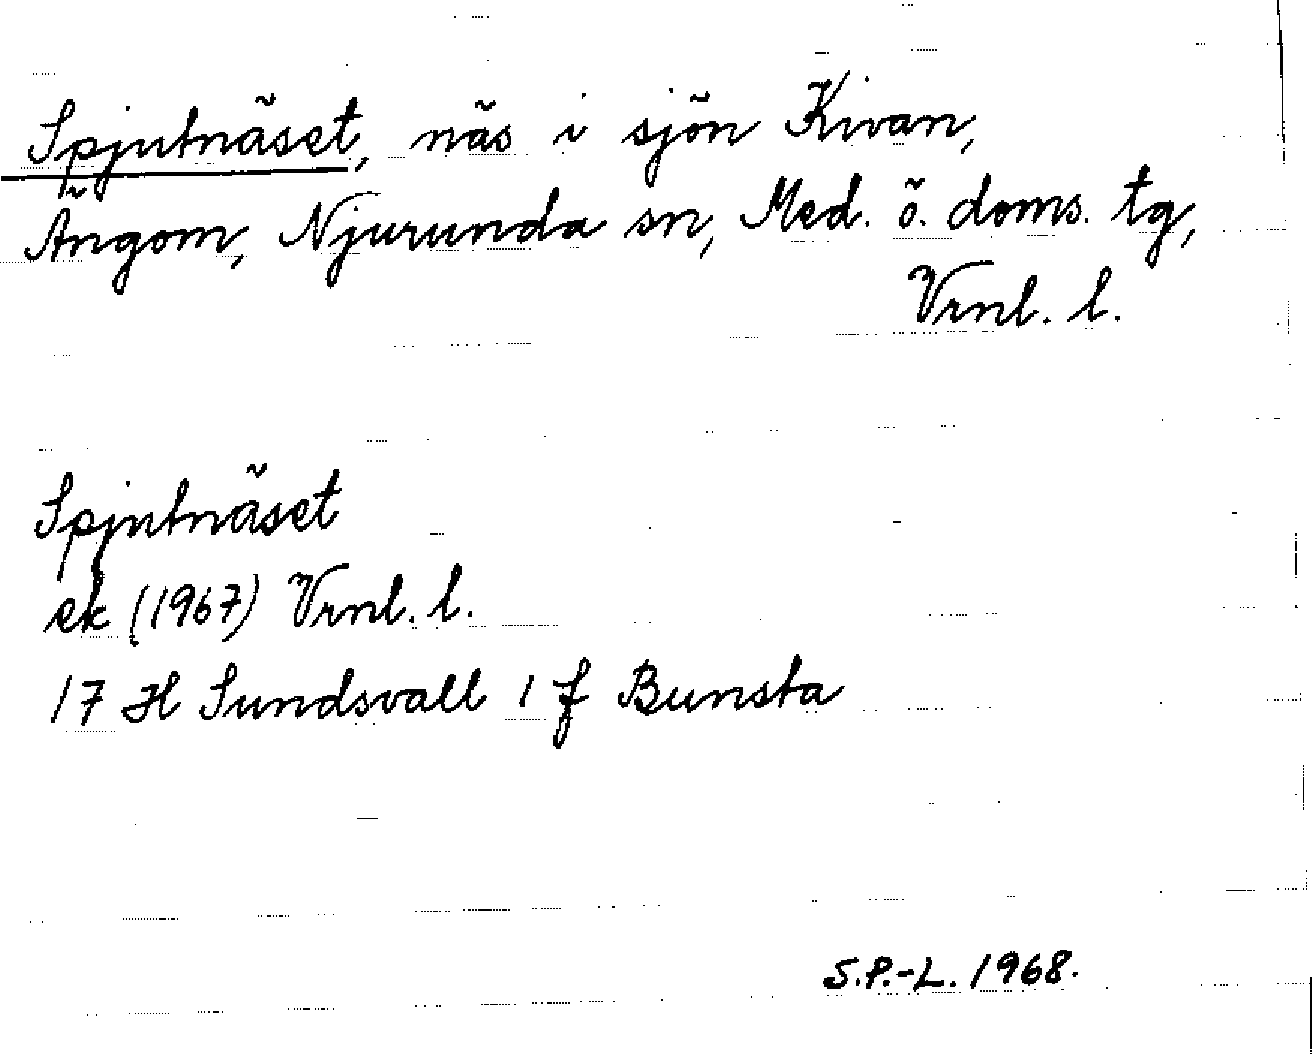 Spjutnäset, näs i sjön Kivan,
Ängom, Njurunda sn, Med. ö. doms. tg,
Vrnl. l.
Spjutnäset
ek (1967) Vrnl. l.
17 H Sundsvall 1 f Bunsta
S.P.-L. 1968.